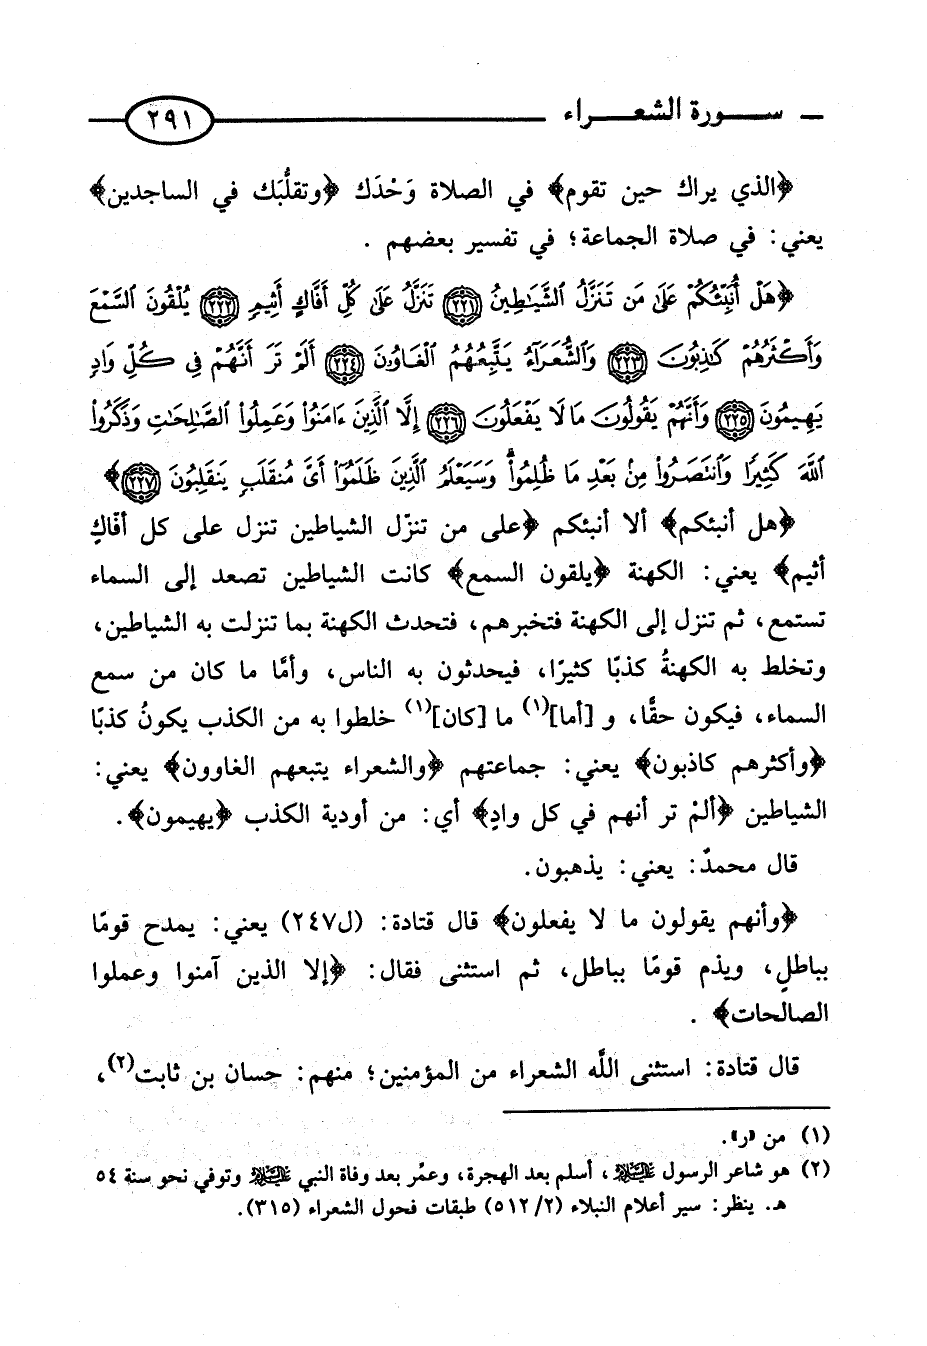 سورة الشعراء ٢٩١
﴿الذي يراك حين تقوم﴾ في الصلاة وَحْدَك ﴿وتقلُّبَك في الساجدين﴾
يعني: في صلاة الجماعة؛ في تفسير بعضهم .
﴿هَلْ أُنَبِّئُكُمْ عَلَىٰ مَن تَنَزَّلُ الشَّيَٰطِينُ ٢٢١ تَنَزَّلُ عَلَىٰ كُلِّ أَفَّاكٍ أَثِيمٍ ٢٢٢ يُلْقُونَ السَّمْعَ
وَأَكْثَرُهُمْ كَٰذِبُونَ ٢٢٣ وَالشُّعَرَآءُ يَتَّبِعُهُمُ الْغَاوُونَ ٢٢٤ أَلَمْ تَرَ أَنَّهُمْ فِي كُلِّ وَادٍ
يَهِيمُونَ ٢٢٥ وَأَنَّهُمْ يَقُولُونَ مَا لَا يَفْعَلُونَ ٢٢٦ إِلَّا الَّذِينَ ءَامَنُوا وَعَمِلُوا الصَّٰلِحَٰتِ وَذَكَرُوا
اللَّهَ كَثِيرًا وَانتَصَرُوا مِنۢ بَعْدِ مَا ظُلِمُوا وَسَيَعْلَمُ الَّذِينَ ظَلَمُوا أَيَّ مُنقَلَبٍ يَنقَلِبُونَ ٢٢٧﴾
﴿هل أنبئكم﴾ ألا أنبئكم ﴿على من تنزّل الشياطين تنزل على كل أفّاكٍ
أثيم﴾ يعني: الكهنة ﴿يلقون السمع﴾ كانت الشياطين تصعد إلى السماء
تستمع، ثم تنزل إلى الكهنة فتخبرهم، فتحدث الكهنة بما تنزلت به الشياطين،
وتخلط به الكهنةُ كذبًا كثيرًا، فيحدثون به الناس، وأمَّا ما كان من سمع
السماء، فيكون حقًّا، و [أما](١) ما [كان](١) خلطوا به من الكذب يكونُ كذبًا
﴿وأكثرهم كاذبون﴾ يعني: جماعتهم ﴿والشعراء يتبعهم الغاوون﴾ يعني:
الشياطين ﴿ألمْ تر أنهم في كل وادٍ﴾ أي: من أودية الكذب ﴿يهيمون﴾.
قال محمدٌ: يعني: يذهبون.
﴿وأنهم يقولون ما لا يفعلون﴾ قال قتادة: (ل٢٤٧) يعني: يمدح قومًا
بباطلٍ، ويذم قومًا بباطل، ثم استثنى فقال: ﴿إلا الذين آمنوا وعملوا
الصالحات﴾ .
قال قتادة: استثنى اللَّه الشعراء من المؤمنين؛ منهم: حسان بن ثابت(٢)،
(١) من «ر».
(٢) هو شاعر الرسول ﷺ، أسلم بعد الهجرة، وعمِّر بعد وفاة النبي ﷺ وتوفي نحو سنة ٥٤
هـ. ينظر: سير أعلام النبلاء (٢/ ٥١٢) طبقات فحول الشعراء (٣١٥).